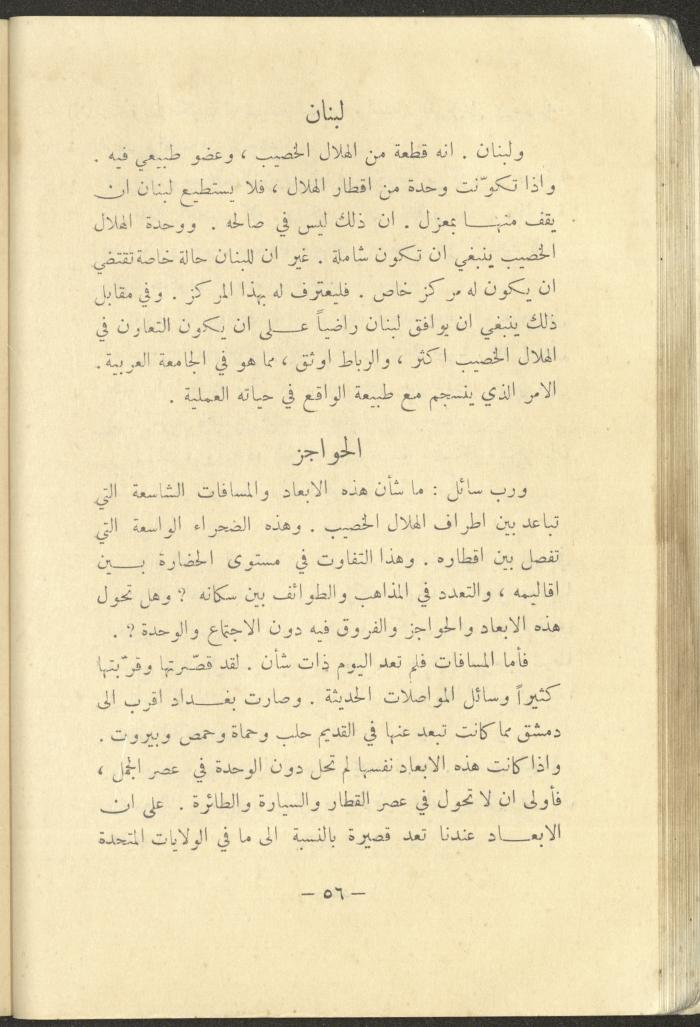 لبنان
ولبنان . انه قطعة من الهلال الخصيب ، وعضو طبيعي فيه .
واذا تكوّنت وحدة من اقطار الهلال ، فلا يستطيع لبنان ان
يقف منهـا بمعزل . ان ذلك ليس في صالحه . ووحدة الهلال
الخصيب ينبغي ان تكون شاملة . غير ان للبنان حالة خاصة تقتضي
ان يكون له مركز خاص . فليعترف له بهذا المركز . وفي مقابل
ذلك ينبغي ان يوافق لبنان راضياً عـلى ان يكون التعاون في
الهلال الخصيب اكثر ، والرباط اوثق ، مما هو في الجامعة العربية .
الامر الذي ينسجم مع طبيعة الواقع في حياته العملية .
الحواجز
ورب سائل : ما شأن هذه الابعاد والمسافات الشاسعة التي
تباعد بين اطراف الهلال الخصيب . وهذه الصحراء الواسعة التي
تفصل بين اقطاره . وهذا التفاوت في مستوى الحضارة بـين
اقاليمه ، والتعدد في المذاهب والطوائف بين سكانه ? وهل تحول
هذه الابعاد والحواجز والفروق فيه دون الاجتماع والوحدة ? .
فأما المسافات فلم تعد اليوم ذات شأن . لقد قصّرتها وقرّبتها
كثيراً وسائل المواصلات الحديثة . وصارت بغـداد اقرب الى
دمشق مما كانت تبعد عنها في القديم حلب وحماة وحمص وبيروت .
واذا كانت هذه الابعاد نفسها لم تحل دون الوحدة في عصر الجمل ،
فأولى ان لا تحول في عصر القطار والسيارة والطائرة . على ان
الابعـاد عندنا تعد قصيرة بالنسبة الى ما في الولايات المتحدة
– ٥٦ –